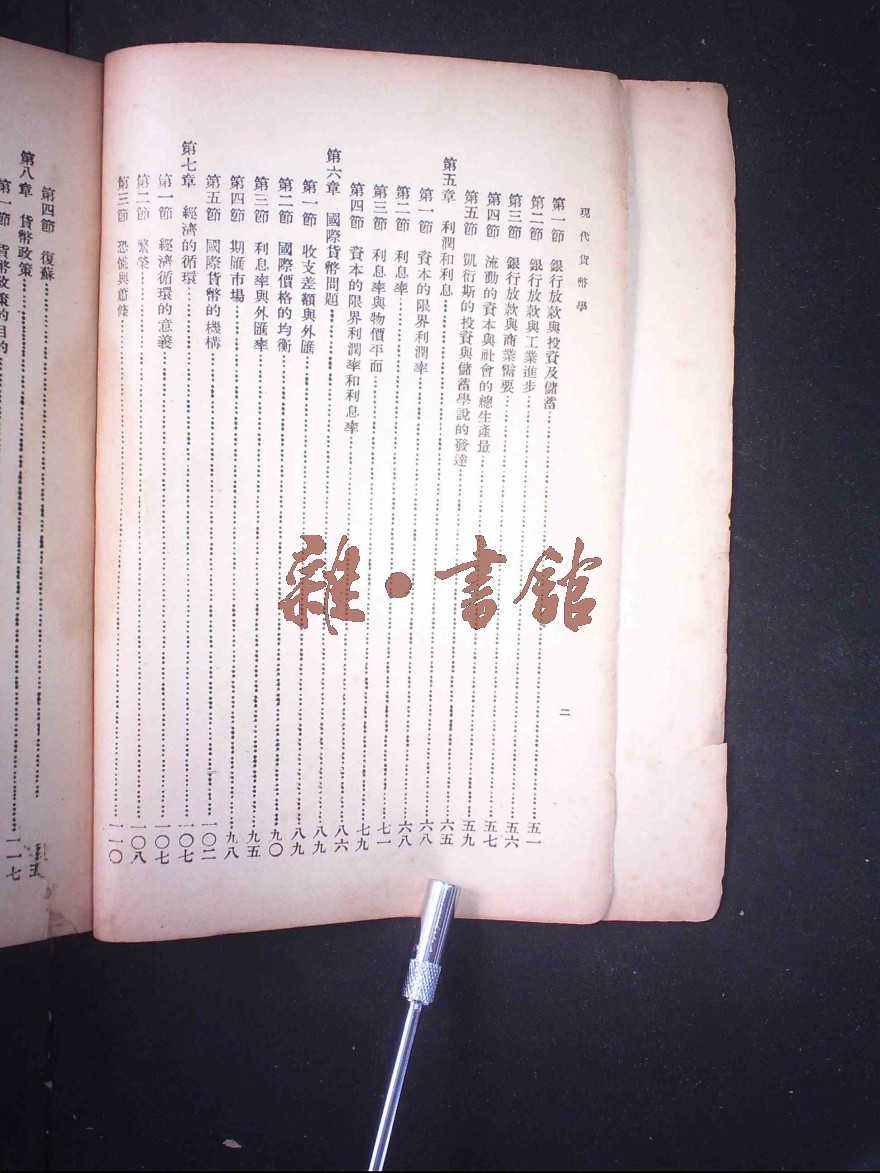 現代貨幣學
第一節 銀行放款與投資及儲蓄……五一
第二節 銀行放款與工業進步……五六
第三節 銀行放款與商業需要……五七
第四節 流動的資本與社會的總生產量……五九
第五節 凱衍斯的投資與儲蓄學說的發達……六五
第五章 利潤和利息……六八
第一節 資本的限界利潤率……六八
第二節 利息率……七一
第三節 利息率與物價平面……七九
第四節 資本的限界利潤率和利息率……八六
第六章 國際貨幣問題……八九
第一節 收支差額與外匯……八九
第二節 國際價格的均衡……九〇
第三節 利息率與外匯率……九五
第四節 期匯市場……九八
第五節 國際貨幣的機構……一〇二
第七章 經濟的循環……一〇七
第一節 經濟循環的意義……一〇七
第二節 繁榮……一〇八
第三節 恐慌與蕭條……一一〇
二
第四節 復蘇……
第八章 貨幣政策……一一七
第一節 貨幣政策的目的
雜·書館